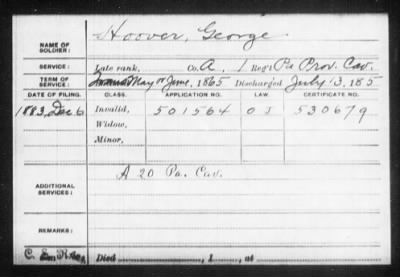 Hoover, George
NAME OF
SOLDIER:
SERVICE:
Late rank, Co. A, 1 Reg't Pa Prov. Cav.
TERM OF
SERVICE:
May or June, 1865 Discharged July 13, 1865
DATE OF FILING. CLASS. APPLICATION NO. LAW. CERTIFICATE NO.
1883, Dec 6 Invalid, 501564 O J 530679
Widow,
Minor,
A 20 Pa. Cav.
ADDITIONAL
SERVICES:
REMARKS:
C. Died , 1 , at